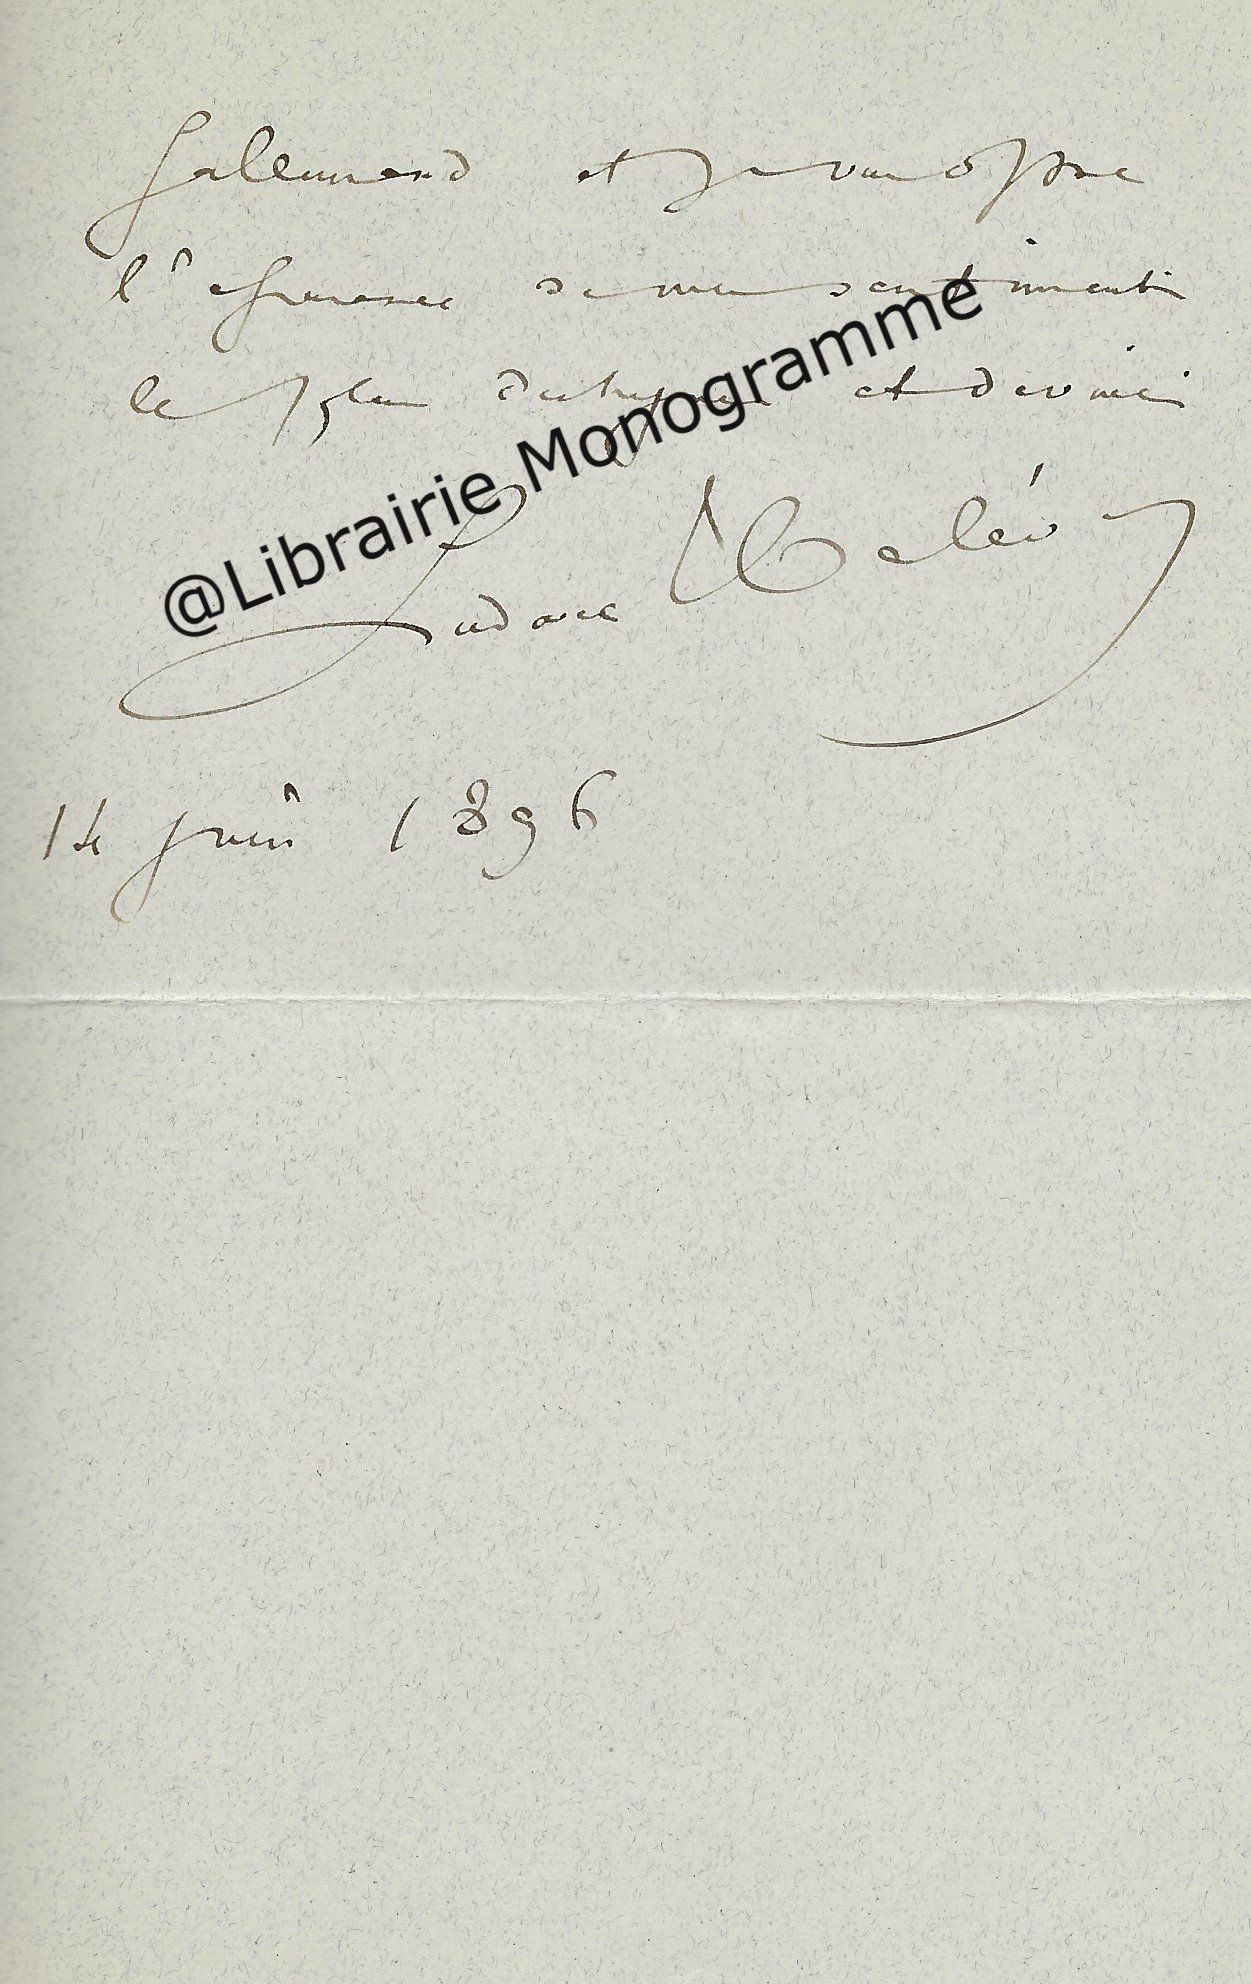 Gallimard et je vous offre
l'expression de mes sentiments
les plus distingués et dévoués
@Librairie Monogramme
Ludovic Halévy
14 juin 1896